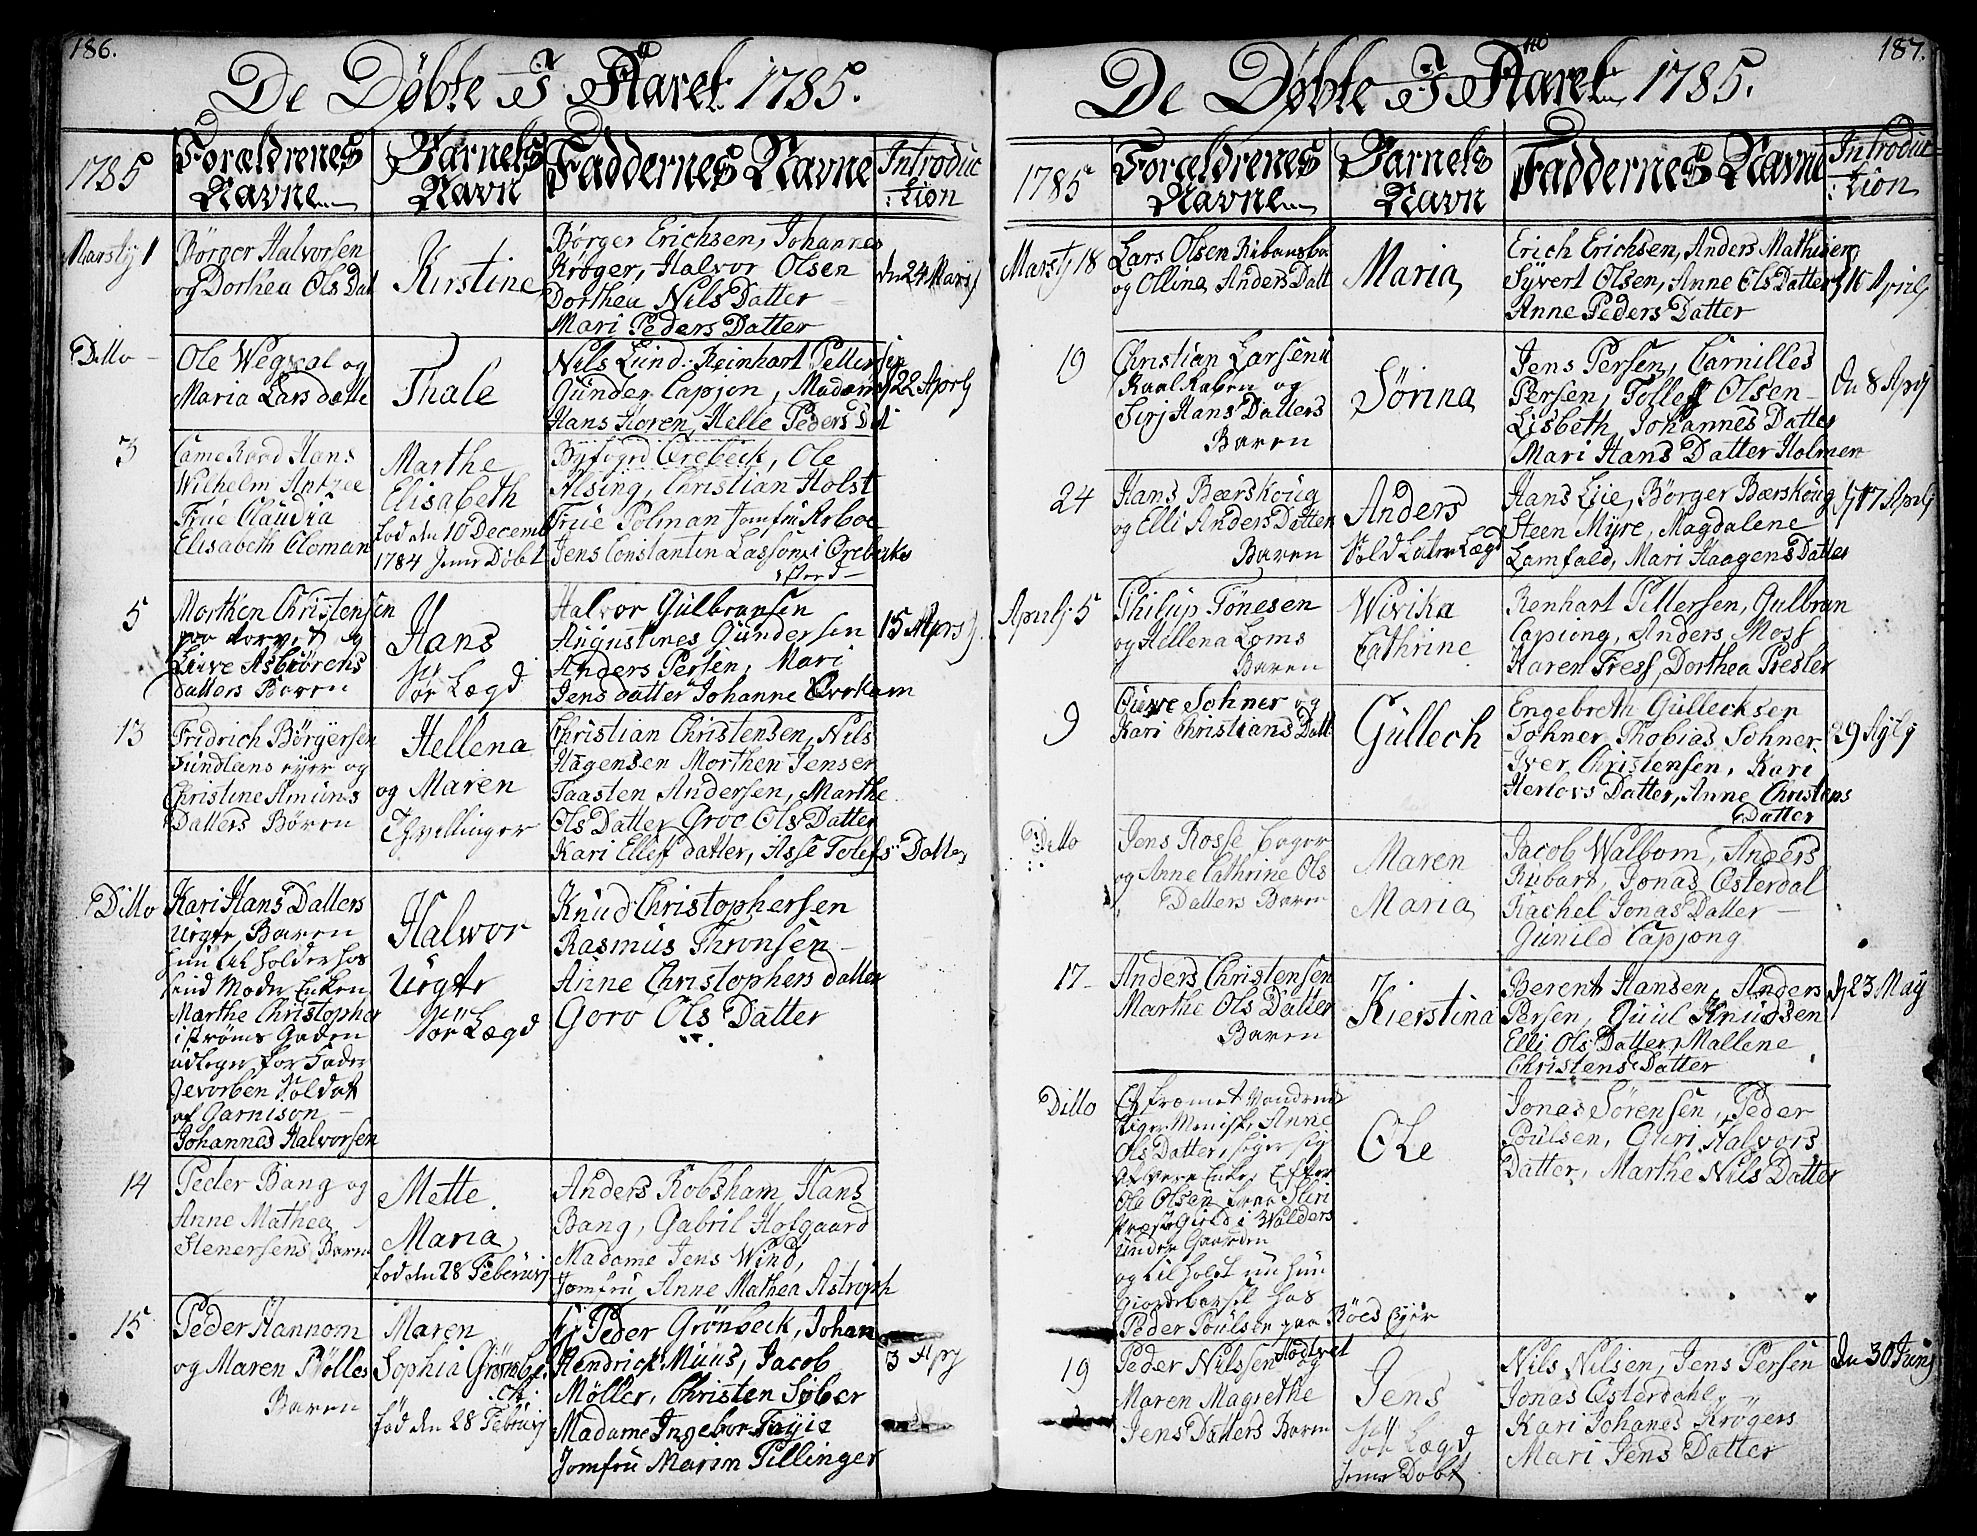 186.
De Døbte I Aaret 1785.
1785
Forældrenes Navne
Barnets Navn
Faddernes Navne
Introduction
Martij 1
Børger Halvorsen
og Dorthea Ols Dat
Kirstine
Børger Erichsen, Johannes
Krøger, Halvor Olsen
Dorthea Nils Datter
Mari Peders Datter
dn 24 Marij
Ditto
Ole Wegsal og
Maria Lars datte
Thale
Nils Lund. Reinhart Pettersen
Gunder Capjon, Madam
Hans Floren, Helle Peders Dat
22 Aprly
3
Came Raad Hans
Wilhelm
Frue Claudia
Elisabeth Cloman
Marthe
Elisabeth
fød den 10 Decemb
1784 Jemr Døbt
Byfogd Orebeck, Ole
Alsing, Christian Holst
Frue Polman Jomfru Arboe
Jens Constantin Lasson
5
Morthen Christensen
paa torvet og
Live Asbiørens
Datters Baren
Hans
Sør Lægd
Halvor Gulbransen
Augustines Gundersen
Anders Persen, Mari
Jens datter Johanne Ørekam
15 Aprs
13
Fridrich Børgersen
Sundlans eyer og
Christine Amuns
Datters Børen
Hellena
og Maren
Thvillinger
Christian Christensen, Nils
Hagensen Morthen Jensen
Taasten Andersen, Marthe
Ols Datter Groe Ols Datter
Kari Ellef datter, Asse Tolefs Datter
Ditto
Kari Hans Datters
Urgte Baren
hun til holder hos
sind Moder Enken
Marthe Christopher
i strøms Gaden
udleger for Fader
gevorben Soldat
af Garnison
Johannes Halvorsen
Halwor
Urgte
Sør Lægd
Knud Christophersen
Rasmus Thronsen
Anne Christophers datter
Goro Ols Datter
14
Peder Bang og
Anne Mathea
Stenersens Baren
Mette
Maria
fød den 28 Feberuvj
Anders Robsham, Hans
Bang, Gabril Hofgaard
Madame Jens Wind,
Jomfru Anne Mathea Astroph
15
Peder Hannom
og Maren Bølles
Baren
Maren
Sophia Grønbe
ck.
fød den 28 Februvj
Hr Peder Grønbeck, Johan
Hendrick Muus, Jacob
Møller, Christen Søber
Madame Ingebor Tayie
Jomfru Marim Pillinger
3 Apr
187.
De Døbte I Aaret 1785.
1785
Forældrenes Navne
Barnets Navn
Faddernes Navne
Introduction
Martj 18
Lars Olsen
og Olline Anders Datt
Maria
Erich Erichsen, Anders Mathisen
Syvert Olsen, Anne Ols Datter
Anne Peders Datter
16 Aprily
19
Christian Larsen
og
Sirj Hans Datters
Baren
Sørina
Jens Persen, Carnilles
Persen, Tollef Olsen
Lisbeth Johannes Datter
Mari Hans Datter Holmen
dn 8 April
24
Hans Bærskoug
og Elli Anders Datter
Baren
Anders
Sold Later Lægd
Hans Lie, Børger Bærskoug
Steen Myre, Magdalene
Lamfald, Mari Haagens Datter
17 April
Aprilj 5
Philup Tønesen
og Hellena Loms
Baren
Wivika
Cathrine
Renhart Pettersen, Gulbran
Capiong, Anders Moss
Karen Fress, Dorthea Presler
9
Ouwe Sohner og
Kari Christians Datt
Gullech
Engebreth Gullecksen
Sohner, Thobias Sohner
Iver Christensen, Kari
Herlovs Datter, Anne Christens
Datter
29 Aply
Ditto
Jens Rosse Bager
og Anne Cathrine Ols
Datters Baren
Maren
Maria
Jacob Walbom, Anders
Rubart, Jonas Østerdal
Rachel Jonas Datter
Gunild Capjong
17
Anders Christensen
Marthe Ols Datter
Baren
Kierstina
Berent Hansen, Anders
Persen, Guul Knudsen
Elli Ols Datter, Mallene
Christens Datter
dn 23 May
Ditto
Et fremet Vandrend
Ols Datter, siger sig
at være Enke Efter
Ole Olsen fraa Slire
Præste Gield i Walders
Under Gaarden
og til holdt nu hun
giorde barsel hos
Peder Poulsen paa Røed Eyer
Ole
Jonas Sørensen, Peder
Poulsen, Guri Halvors
Datter, Marthe Nils Datter
19
Peder Nilssen og
Maren Magrethe
Jens Datters Baren
Jens
Sør Lægd
Jemr Døbt
Nils Nilsen, Jens Persen
Jonas Østerdahl
Kari Johanes Krøgers
Mari Jens Datter
dn 30 Junj